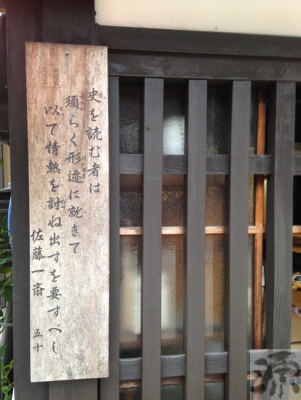 史を読む者は
須らく形迹に就きて
以て情熱を討ね出すを要すべし
佐藤一斎
五十
源